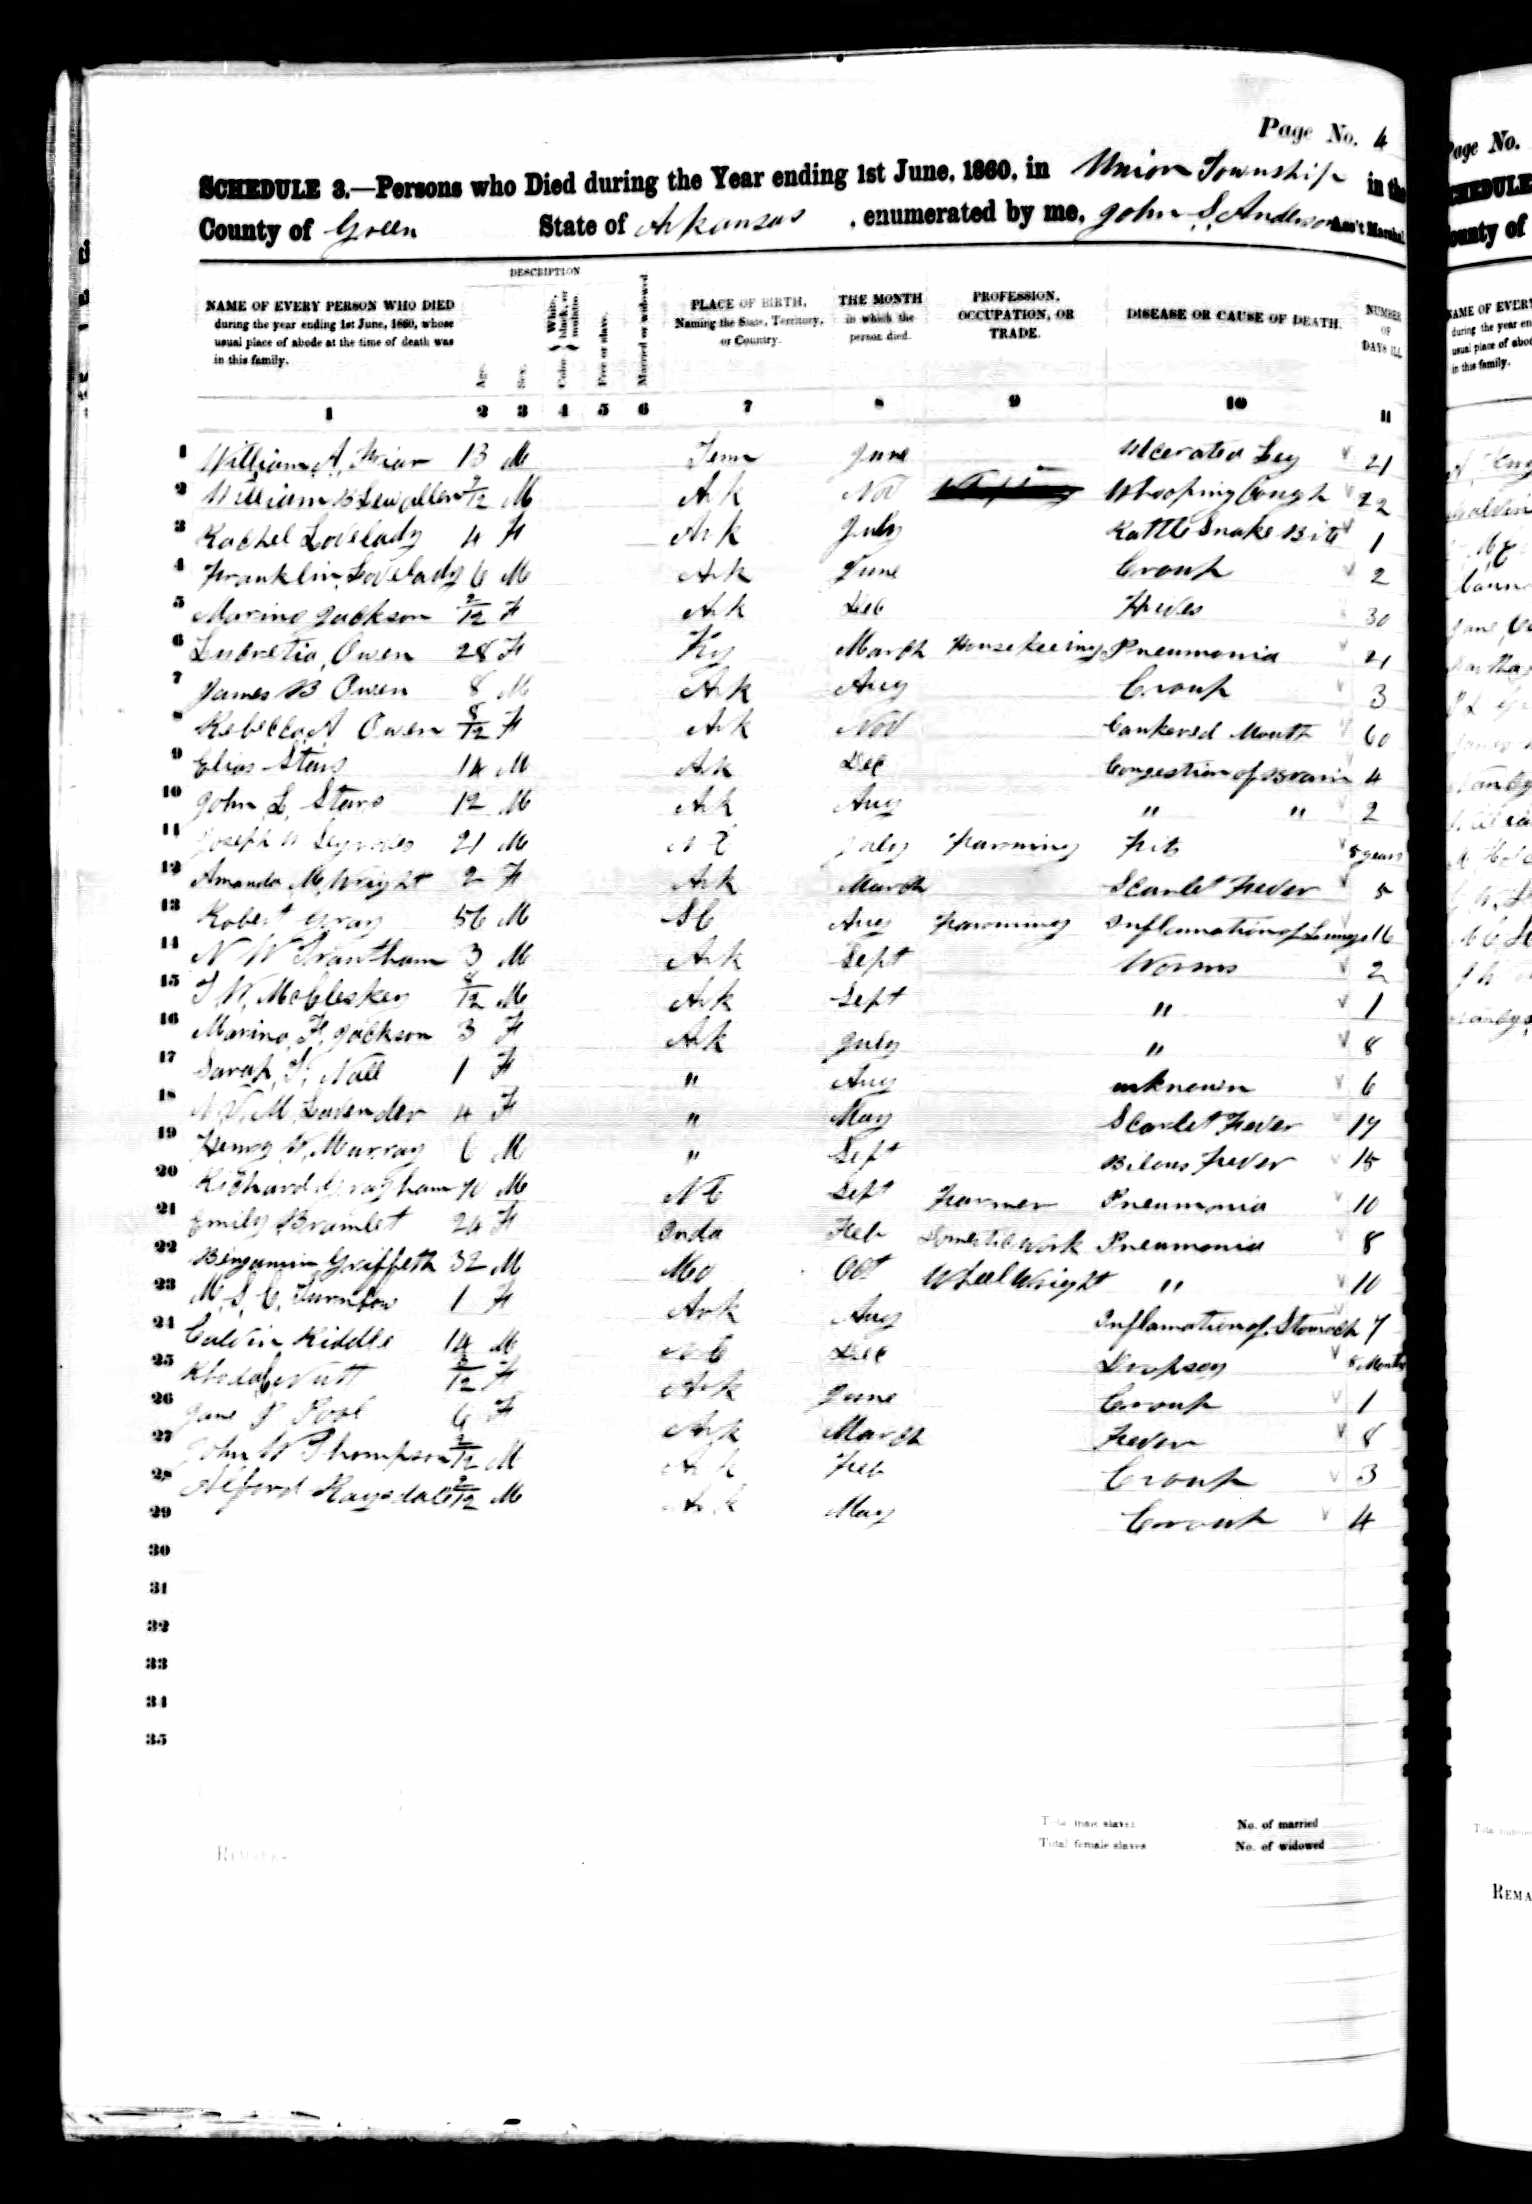 Page No. 4
SCHEDULE 3.—Persons who Died during the Year ending 1st June, 1860, in Union Township in the
County of Green State of Arkansas, enumerated by me, John S. Anderson Ass't Marshal
DESCRIPTION
NAME OF EVERY PERSON WHO DIED during the year ending 1st June, 1860, whose usual place of abode at the time of death was in this family. Age. Sex. Color White, black, or mulatto. Free or slave. Married or widowed PLACE OF BIRTH, Naming the State, Territory, or Country. THE MONTH in which the person died. PROFESSION, OCCUPATION, OR TRADE. DISEASE OR CAUSE OF DEATH. NUMBER OF DAYS ILL
1 2 3 4 5 6 7 8 9 10 11
1 William A. Friar 13 M Tenn June Ulcerated Leg 21
2 William B Lewallen /12 M Ark Nov Whooping Cough 22
3 Rachel Lovelady 4 F Ark July Rattle Snake Bite 1
4 Franklin Lovelady 6 M Ark June Croup 2
5 Jackson 2/12 F Ark Dec Hives 30
6 Lucretia Owen 28 F Ky March Housekeeping Pneumonia 21
7 James B Owen 8 M Ark Aug Croup 3
8 Rebecca A Owen 8/12 F Ark Nov Cankered Mouth 60
9 Elias 14 M Ark Dec Congestion of Brain 4
10 John L. 12 M Ark Aug " " 2
11 Joseph 21 M July Farming Fits 8 years
12 Amanda M. Wright 2 F Ark March Scarlet Fever 5
13 Robert Gray 56 M SC Aug Farming Inflamation of Lungs 16
14 N W Trantham 3 M Ark Sept Worms 2
15 McCleskey 8/12 M Ark Sept " 1
16 F. Jackson 3 F Ark July " 8
17 Sarah Nall 1 F " Aug unknown 6
18 M Lavender 4 F " May Scarlet Fever 17
19 Henry W. Murray 6 M " Sept Bilous Fever 15
20 Richard 70 M NC Sept Farmer Pneumonia 10
21 Emily Bramlet 24 F Inda Feb Domestic Work Pneumonia 8
22 Benjamin Griffeth 32 M Mo Oct Wheel Wright " 10
23 M. S. C. Turnbow 1 F Ark Aug Inflamation of Stomach 7
24 Calvin Riddle 14 M Dec Dropsey 8 Months
25 Nutt /12 F Ark June Croup 1
26 Jane Pool 6 F Ark March Fever 8
27 John W Thompson 2/12 M Ark Feb Croup 3
28 Alford Ragsdale /12 M Ark May Croup 4
29
30
31
32
33
34
35
Total male slaves No. of married
Total female slaves No. of widowed
REMARKS